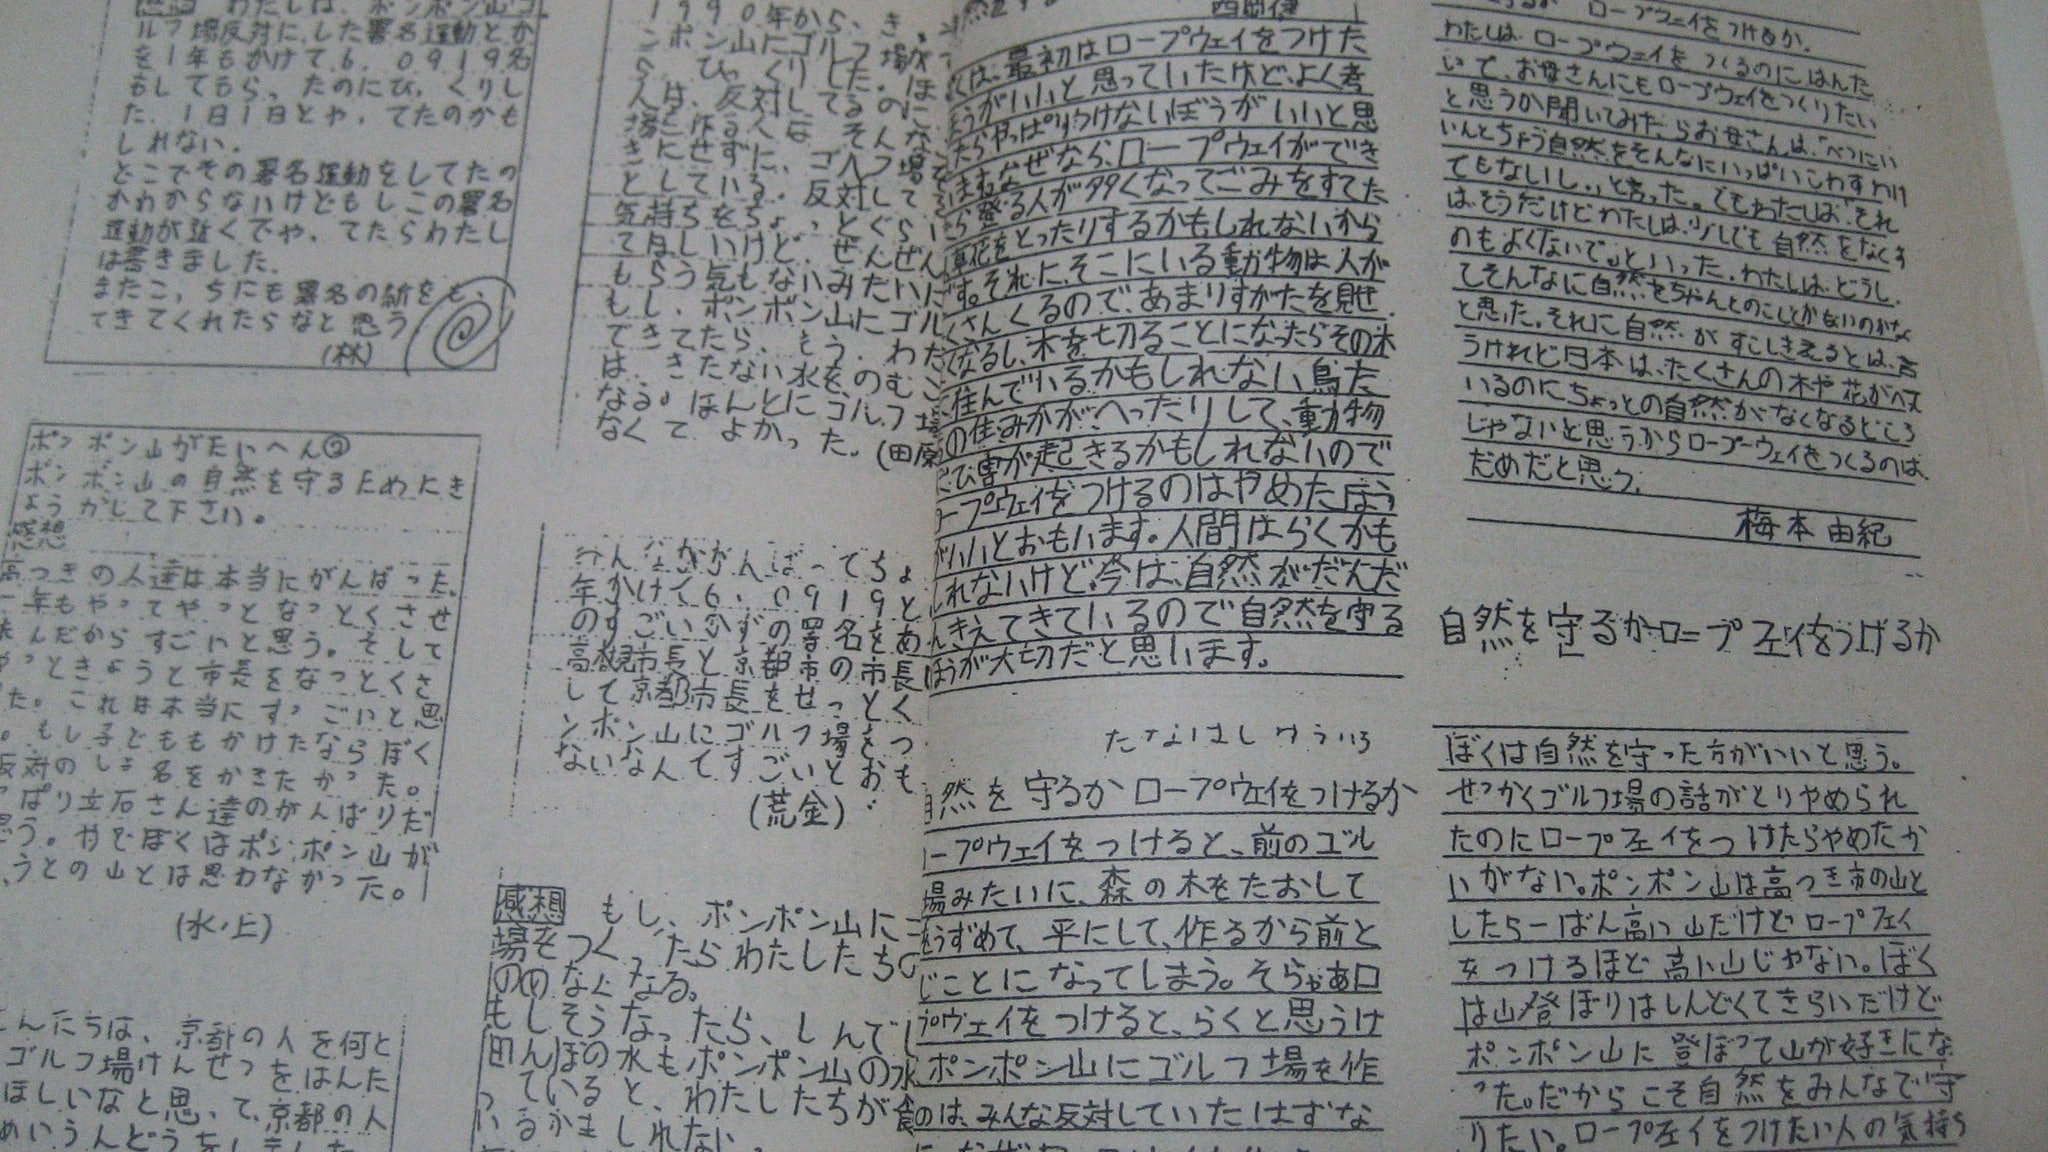 わたしは、ポンポン山ゴ
ルフ場反対にした署名運動とか
を1年もかけて6.0919名
もしてもらったのにびっくりし
た。1日1日とやってたのかも
しれない。
どこでその署名運動をしてたの
かわからないけどもしこの署名
運動が近くでやってたらわたし
は書きました。
またこっちにも署名の紙をもっ
てきてくれたらなと思う
(林)
ポンポン山がたいへん②
ポンポン山の自然を守るためにき
ょうかして下さい。
感想
高つきの人達は本当にがんばった。
一年もやってやっとなっとくさせ
たんだからすごいと思う。そして
やっときょうと市長をなっとくさ
た。これは本当にすっごいと思
。もし子どももかけたならぼく
反対のしょ名をかきたかった。
っぱり立石さん達のがんばりだ
思う。やでぼくはポンポン山が
(水ノ上)
こんにちは、京都の人を何と
ゴルフ場けんせつをはんた
ほしいなと思って、京都の人
めいうんどうをしました
1990年から、き
ンポン山にゴルフ場が
ら、びっくりした。ほ
人は、反対してるのに
場を作る人は、そんな
きにせずに、ゴルフ場を
としている。反対して
気持ちをちょっとぐらい
てほしいけど、ぜんぜん
もらう気もないみたいに
もし、ポンポン山にゴル
できてたら、もう、わた
は、きたない水をのむこ
なる。ほんとにゴルフ場
なくてよかった。(田原
みんながんばってちょ
年かけて6.0919と
のすごいかずの署名をあ
高槻市長と京都市の市長
して京都市長をせっとく
ンポン山にゴルフ場をつ
ないなんてすごいとおも
(荒金)
感想 もし、ポンポン山にゴ
場をつくったらわたしたちの
のがなくなる。
もしそうなったら、しんでし
田んぼの水もポンポン山の水
っていると、わたしたちが食
いるかもしれない
西岡健
くは、最初はロープウェイをつけた
ほうがいいと思っていたけど、よく考
たらやっぱりつけないほうがいいと思
います。なぜなら、ロープウェイができ
たら登る人が多くなってごみをすてた
草花をとったりするかもしれないから
です。それに、そこにいる動物は人が
くさんくるので、あまりすがたを見せ
なくなるし、木を切ることになったらその木
に住んでいるかもしれない鳥た
の住みかがへったりして、動物
にひ害が起きるかもしれないので
ロープウェイをつけるのはやめたほう
がいいとおもいます。人間はらくかも
しれないけど、今は、自然がだんだ
んきえてきているので自然を守る
ほうが大切だと思います。
たなはしゆういち
自然を守るかロープウェイをつけるか
ロープウェイをつけると、前のゴル
場みたいに、森の木をたおして
をうずめて、平にして、作るから前と
じことになってしまう。そらゃあロ
プウェイをつけると、らくと思うけ
ポンポン山にゴルフ場を作
のは、みんな反対していたはずな
ロープウェイをつけるか。
わたしは、ロープウェイをつくるのにはんた
いで、お母さんにもロープウェイをつくりたい
と思うか聞いてみたらお母さんは、「べつにい
いんとちょう自然をそんなにいっぱいこわすわけ
でもないし。」と言った。でもわたしは「それ
はそうだけどわたしは、少しでも自然をなくす
のもよくないで。」といった。わたしは、どうし
てそんなに自然をちゃんとのことかないのかな
と思った。それに自然がすこしきえるとは、言
うけれど日本は、たくさんの木や花がへって
いるのにちょっとの自然がなくなるどころ
じゃないと思うからロープーウェイをつくるのは
だめだと思う。
梅本由紀
自然を守るかロープウェイをつけるか
ぼくは自然を守った方がいいと思う。
せっかくゴルフ場の話がとりやめられ
たのにロープウェイをつけたらやめたか
いがない。ポンポン山は高つき市の山と
したら一ばん高い山だけどロープウェイ
をつけるほど高い山じゃない。ぼく
は山登ぼりはしんどくてきらいだけど
ポンポン山に登ぼって山が好きにな
った。だからこそ自然をみんなで守
りたい。ロープウェイをつけたい人の気持ち